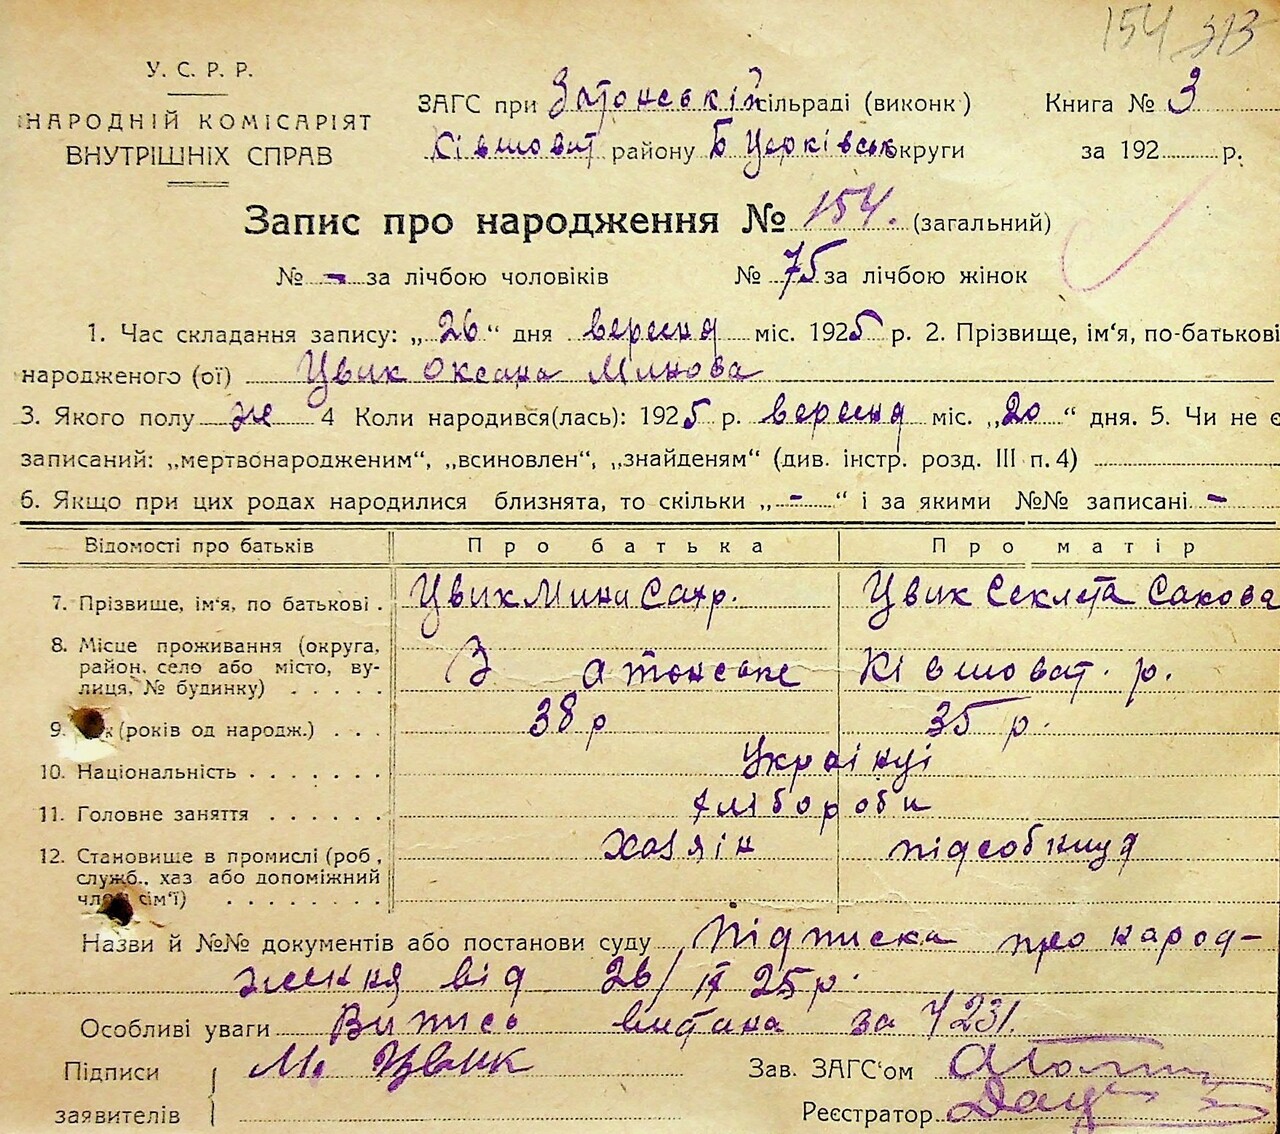 154 313
У. С. Р. Р.
НАРОДНІЙ КОМІСАРІЯТ
ВНУТРІШНІХ СПРАВ
ЗАГС при Затонській сільраді (виконк)
Ківшоват району Б Церківськ округи
Книга № 3
за 192 р.
Запис про народження № 154. (загальний)
№ - за лічбою чоловіків № 75 за лічбою жінок
1. Час складання запису: „26“ дня вересня міс. 1925 р. 2. Прізвище, ім'я, по-батькові
народженого (ої) Цвик Оксана Минова
3. Якого полу ж 4 Коли народився(лась): 1925 р. вересня міс. „20“ дня. 5. Чи не є
записаний: „мертвонародженим“, „всиновлен“, „знайденям“ (див. інстр. розд. III п. 4)
6. Якщо при цих родах народилися близнята, то скільки „-“ і за якими №№ записані -
Відомості про батьків Про батька Про матір
7. Прізвище, ім'я, по батькові . Цвик Мина Сахр. Цвик Секлета Сакова
8. Місце проживання (округа,
район. село або місто, ву-
лиця, № будинку) . . . . . З атонське Ківшоват. р.
9. (років од народж.) . . . 38 р 35 р.
10. Національність . . . . . . . Українці
11. Головне заняття . . . . . . хлібороби
12. Становище в промислі (роб,
служб., хаз або допоміжний
член сім'ї) . . . . . . . . хазяїн підсобниця
Назви й №№ документів або постанови суду Підписка про народ-
ження від 26/IX 25 р.
Особливі уваги Випись видана за № 231.
Підписи
заявителів М. Цвик
Зав. ЗАГС'ом
Реєстратор